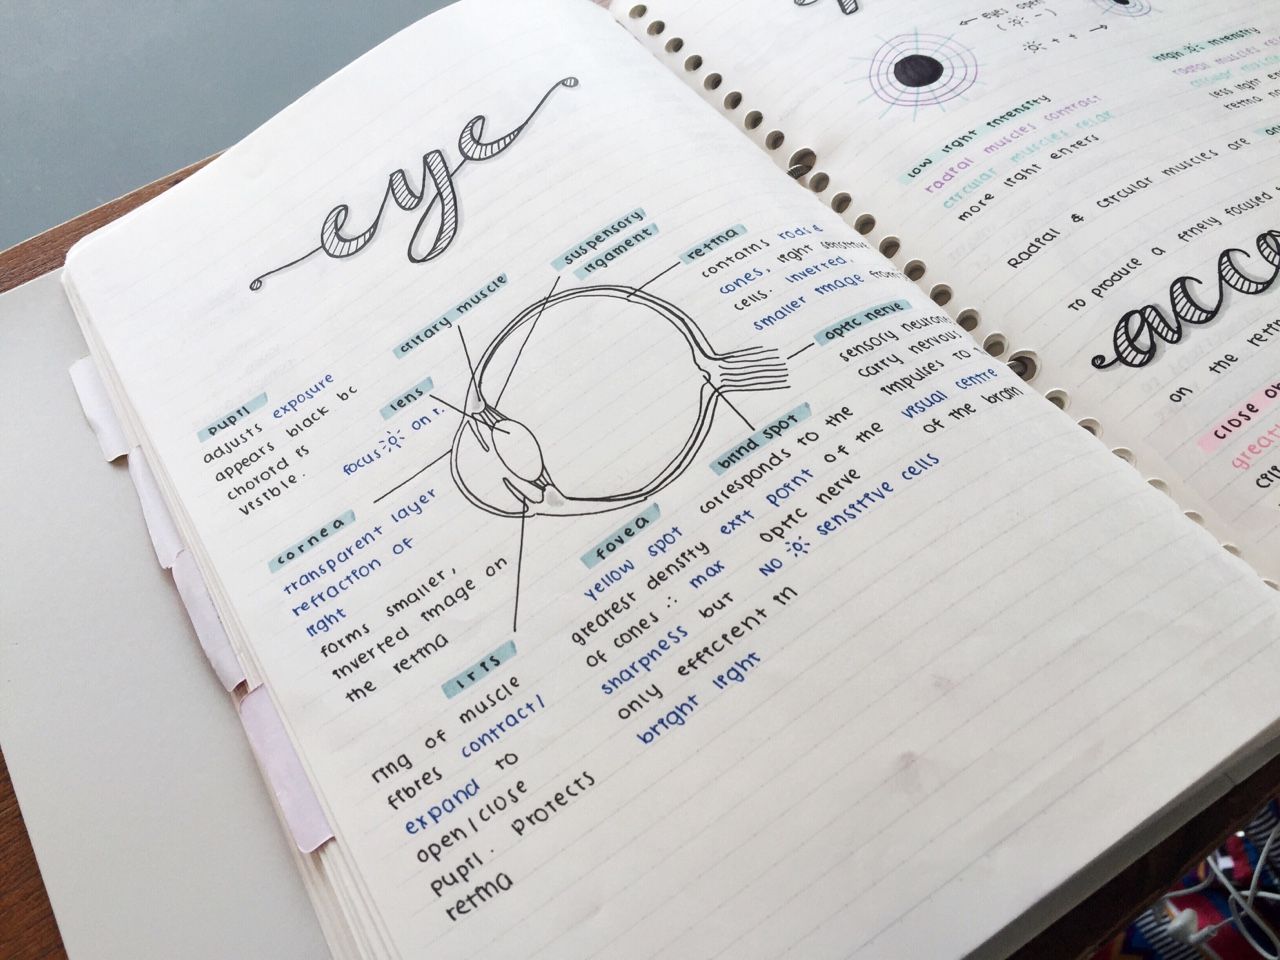 eye
pupil
adjusts exposure
appears black bc
choroid is
visible.
ciliary muscle
suspensory
ligament
lens
focus on r.
retina
contains rods &
cones, light sensitive
cells. inverted,
smaller image
optic nerve
sensory neurons
carry nervous
impulses to
visual centre
of the brain
blind spot
corresponds to the
exit point of the
optic nerve
NO sensitive cells
cornea
transparent layer
refraction of
light
forms smaller,
inverted image on
the retina
iris
ring of muscle
fibres contract/
expand to
open/close
pupil. protects
retina
fovea
yellow spot
greatest density
of cones ∴ max
sharpness but
only efficient in
bright light
← eyes open
( - )
+ + →
low light intensity
radial muscles contract
circular muscles relax
more light enters
high intensity
radial muscles
less light
retina
Radial & circular muscles are
to produce a finely focused
acco
on the retin
close